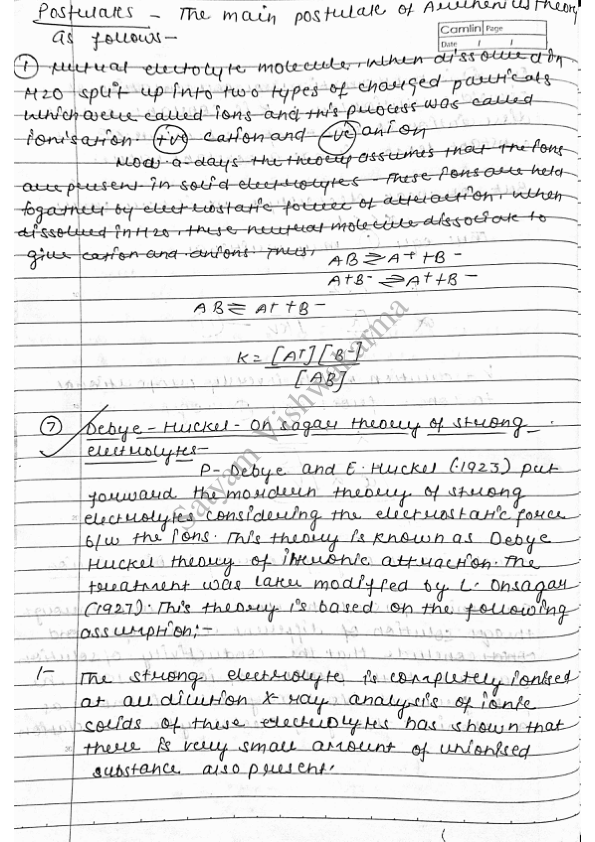 Postulates - The main postulate of Arrhenius theory
as follows-
Camlin Page
Date / /
① Neutral electrolyte molecule, when dissolved in
H2O split up into two types of charged particals
which were called ions and this process was called
ionisation. +ve cation and -ve anion
Now-a-days the theory assumes that the ions
are present in solid electrolytes. These ions are held
togather by electrostatic forces of attraction. when
dissolved in H2O, these neutral molecule dissociate to
give cation and anions. Thus,
AB ⇌ A+ + B-
A+B- ⇌ A+ + B-
AB ⇌ A+ + B-
K = [A+][B-]
[AB]
Satyam Vishwakarma
⑦ Debye-Huckel-Onsagar theory of strong
electrolytes-
P-Debye and E.Huckel (1923) put
forward the mordern theory of strong
electrolytes considering the electrostatic force
b/w the ions. This theory is known as Debye
Huckel theory of interionic attraction. The
treatment was later modified by L. Onsagar
(1927). This theory is based on the following
assumption;-
1- The strong electrolyte is completely ionised
at all dilution X-ray analysis of ionic
solids of these electrolytes has shown that
there is very small amount of unionised
substance also present.